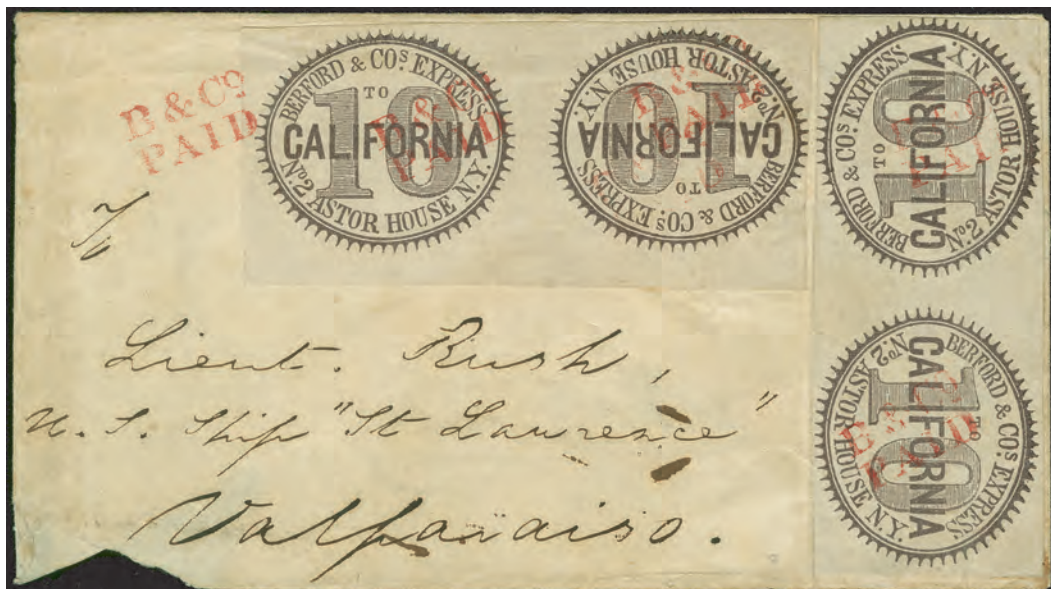 B & Co
PAID
BERFORD & COS EXPRESS
10
TO
CALIFORNIA
No. 2 ASTOR HOUSE N.Y.
B & Co
PAID
BERFORD & COS EXPRESS
10
TO
CALIFORNIA
No. 2 ASTOR HOUSE N.Y.
B & Co
PAID
BERFORD & COS EXPRESS
10
TO
CALIFORNIA
No. 2 ASTOR HOUSE N.Y.
B & Co
PAID
BERFORD & COS EXPRESS
10
TO
CALIFORNIA
No. 2 ASTOR HOUSE N.Y.
B & Co
PAID
Lieut. Rush,
U. S. Ship "St Lawrence"
Valparaiso.